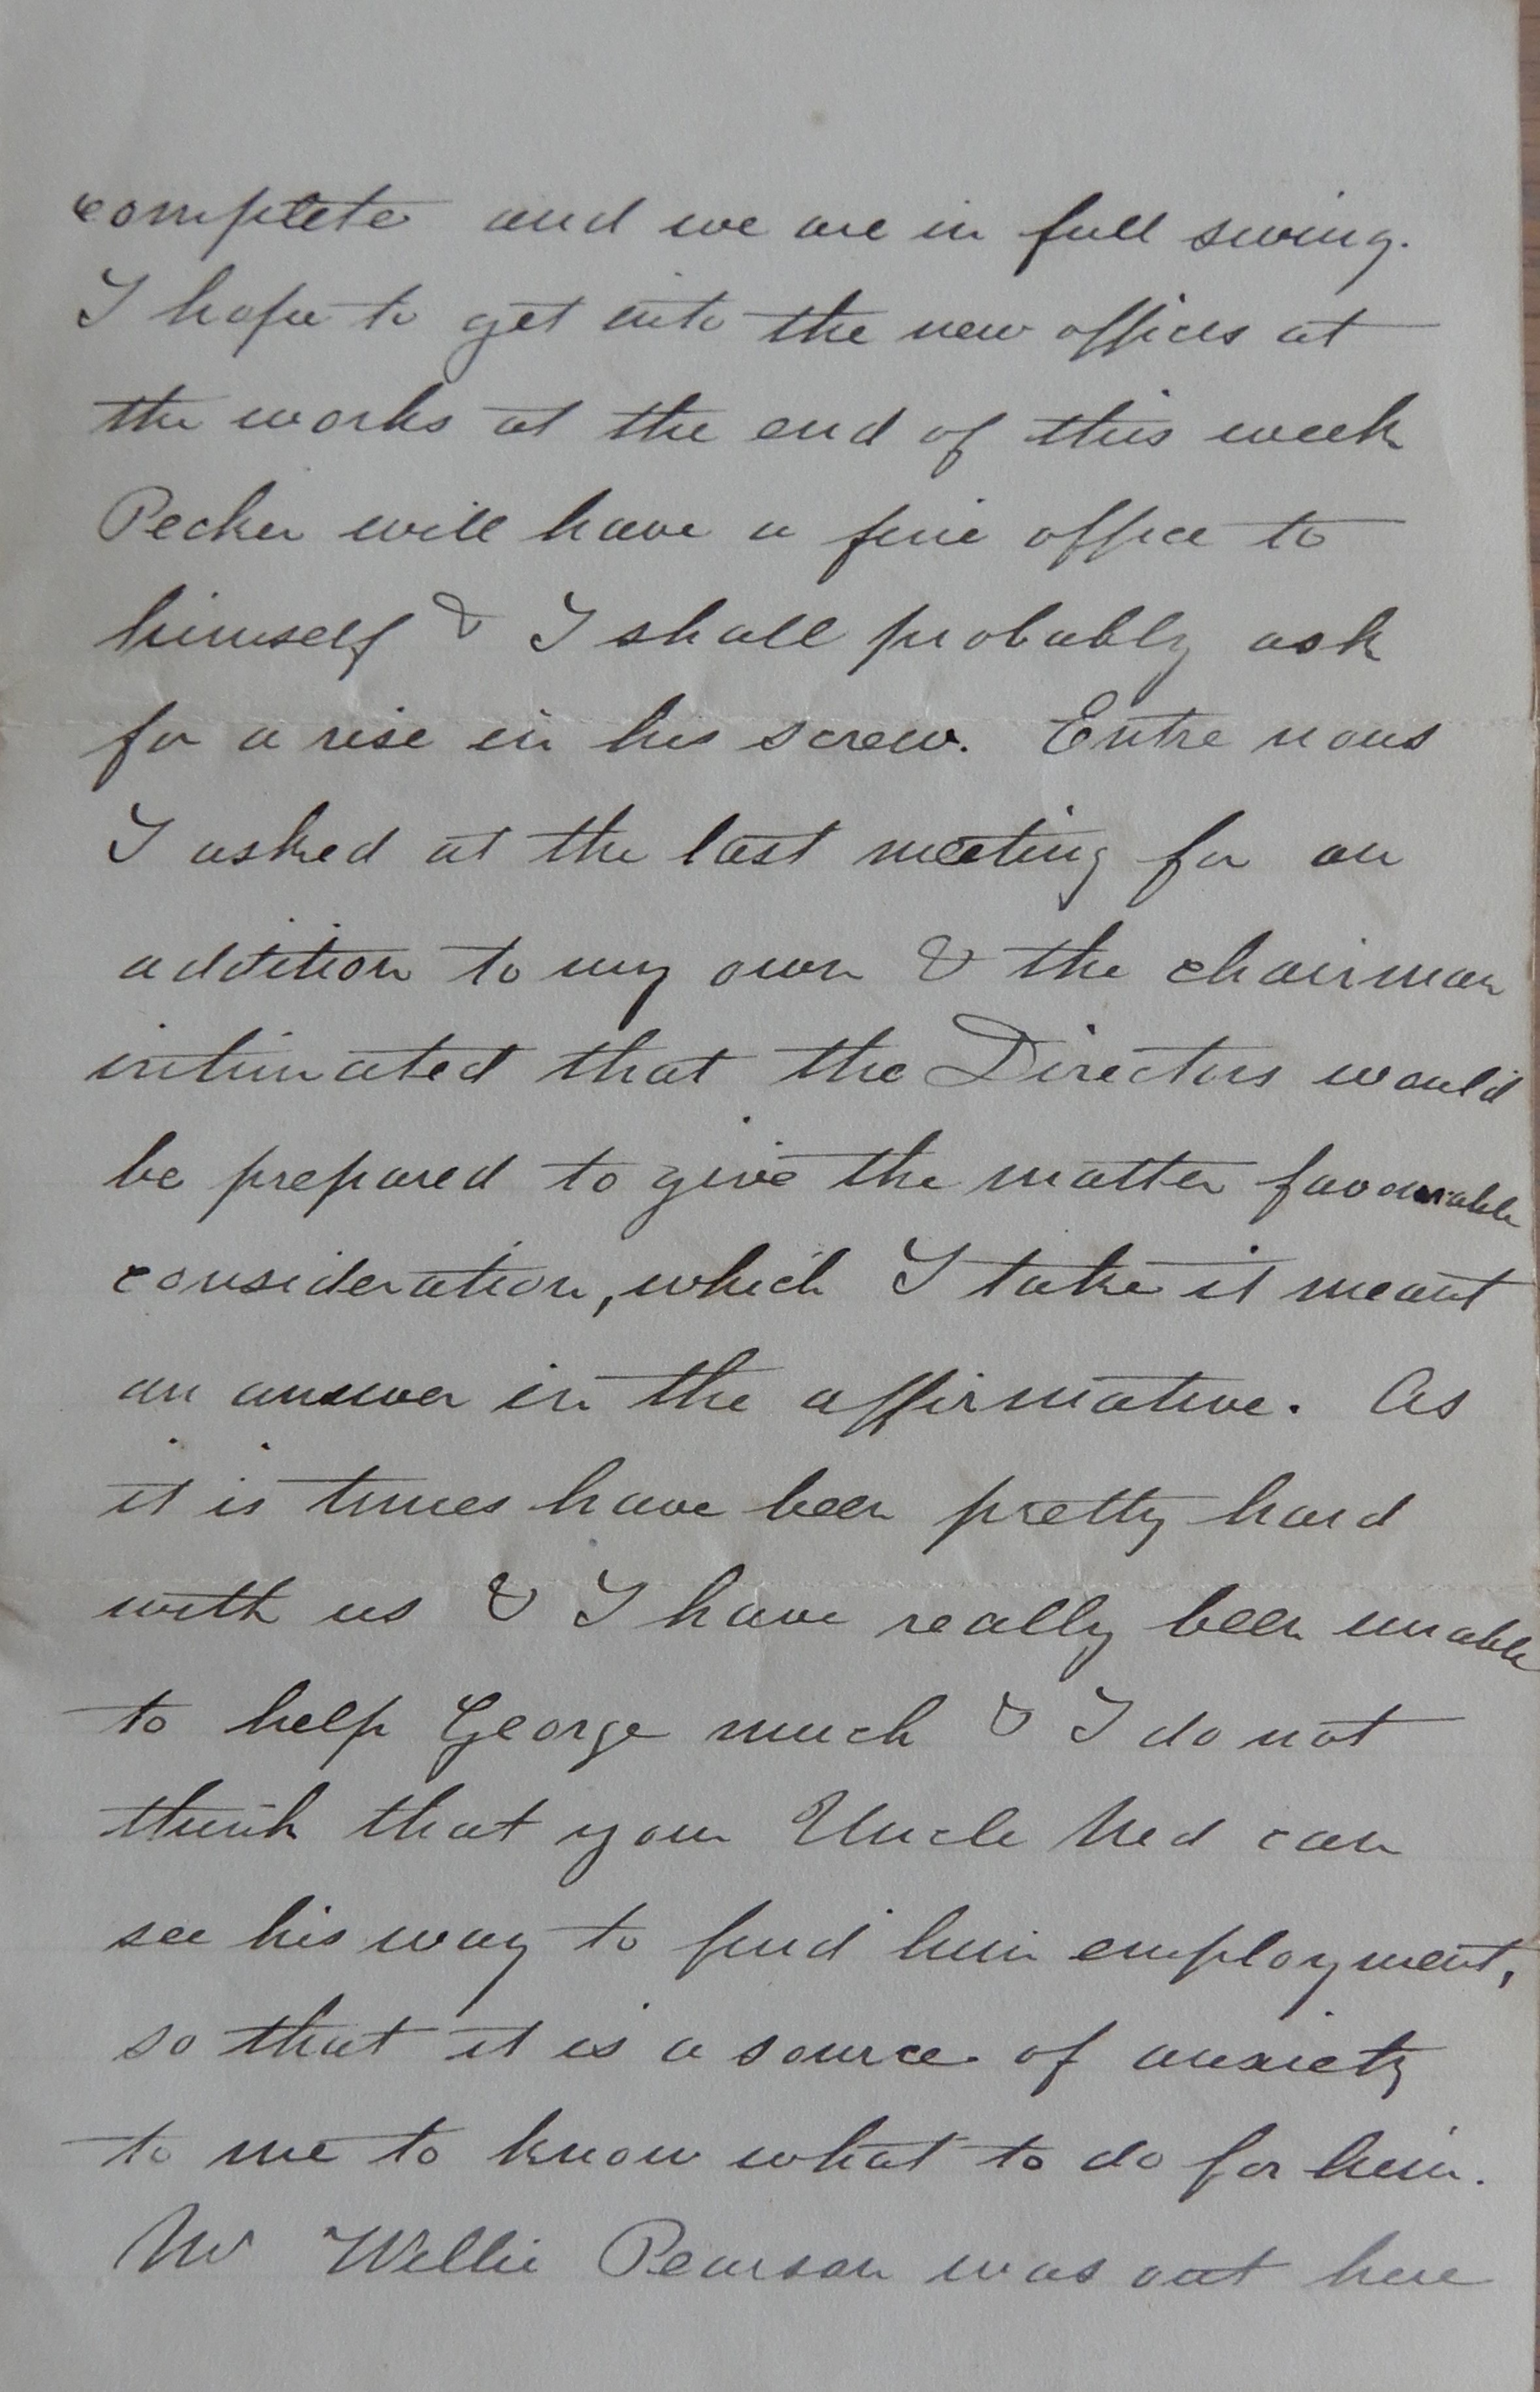 complete and we are in full swing.
I hope to get into the new offices at
the works at the end of this week
Pecker will have a fine office to
himself & I shall probably ask
for a rise in his screw. Entre nous
I asked at the last meeting for an
addition to my own & the chairman
intimated that the Directors would
be prepared to give the matter favourable
consideration, which I take it meant
an answer in the affirmative. As
it is times have been pretty hard
with us & I have really been unable
to help George much & I do not
think that your Uncle Ned can
see his way to find him employment,
so that it is a source of anxiety
to me to know what to do for him.
Mr Willie Pearson was out here